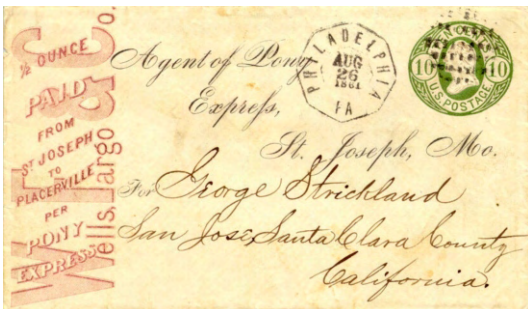 ½ OUNCE
PAID
FROM
ST JOSEPH
TO
PLACERVILLE
PER
PONY
EXPRESS
Wells, Fargo & Co.
Agent of Pony
Express,
St. Joseph, Mo.
PHILADELPHIA
AUG
26
1861
PA
TEN CENTS
10 10
U.S. POSTAGE
For George Strickland
San José Santa Clara County
California.